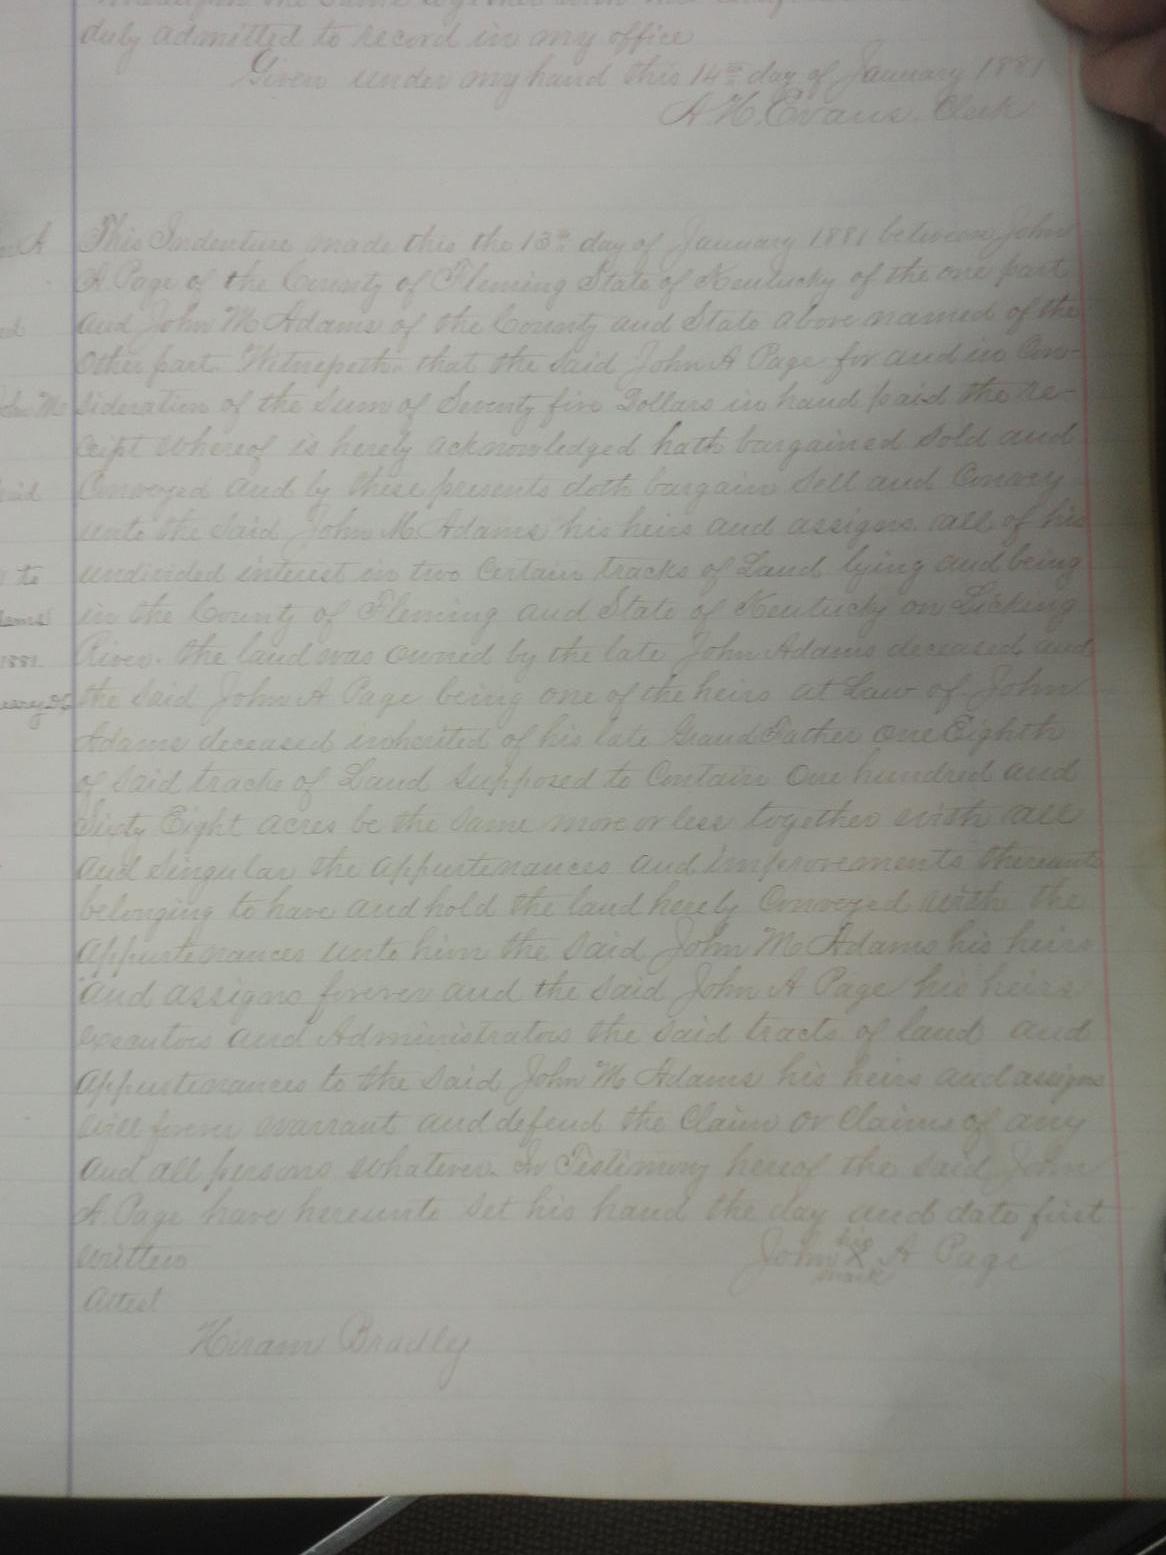 duly admitted to record in my office
Given under my hand this 14th day of January 1881
A. H. Evans. Clerk
This Indenture made this the 13th day of January 1881 between John
A Page of the County of Fleming State of Kentucky of the one part
and John M Adams of the County and State above named of the
other part. Witnesseth. that the said John A Page for and in Con-
sideration of the sum of Seventy five Dollars in hand paid the re-
ceipt whereof is hereby acknowledged hath bargained sold and
Conveyed and by these presents doth bargain sell and Convey
unto the said John M. Adams his heirs and assigns all of his
undivided interest in two certain tracks of Land lying and being
in the County of Fleming and State of Kentucky on Licking
River. the land was owned by the late John Adams deceased and
the said John A Page being one of the heirs at Law of John
Adams deceased inherited of his late Grand Father one Eighth
of said tracks of Land supposed to Contain One hundred and
Sixty Eight acres be the same more or less together with all
and singular the appurtenances and improvements thereunto
belonging to have and hold the land hereby Conveyed with the
appurtenances unto him the said John M Adams his heirs
and assigns forever and the said John A Page his heirs
executors and Administrators the said tracts of land and
appurtenances to the said John M Adams his heirs and assigns
will forever warrant and defend the Claim or Claims of any
and all persons whatever. In Testimony hereof the said John
A. Page have hereunto set his hand the day and date first
written
John his X mark A Page
Attest
Hiram Bradley
to
1881